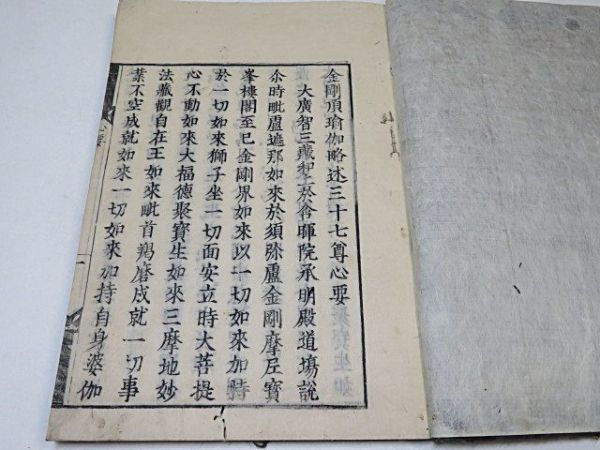 金剛頂瑜伽略述三十七尊心要
大廣智三藏和上於含暉院承明殿道場說
尒時毗盧遮那如來於須弥盧金剛摩尼寶
峯樓閣至已金剛界如來以一切如來加持
於一切如來獅子坐一切面安立時大菩提
心不動如來大福德聚寶生如來三摩地妙
法藏觀自在王如來毗首羯磨成就一切事
業不空成就如來一切如來加持自身婆伽
心要
一